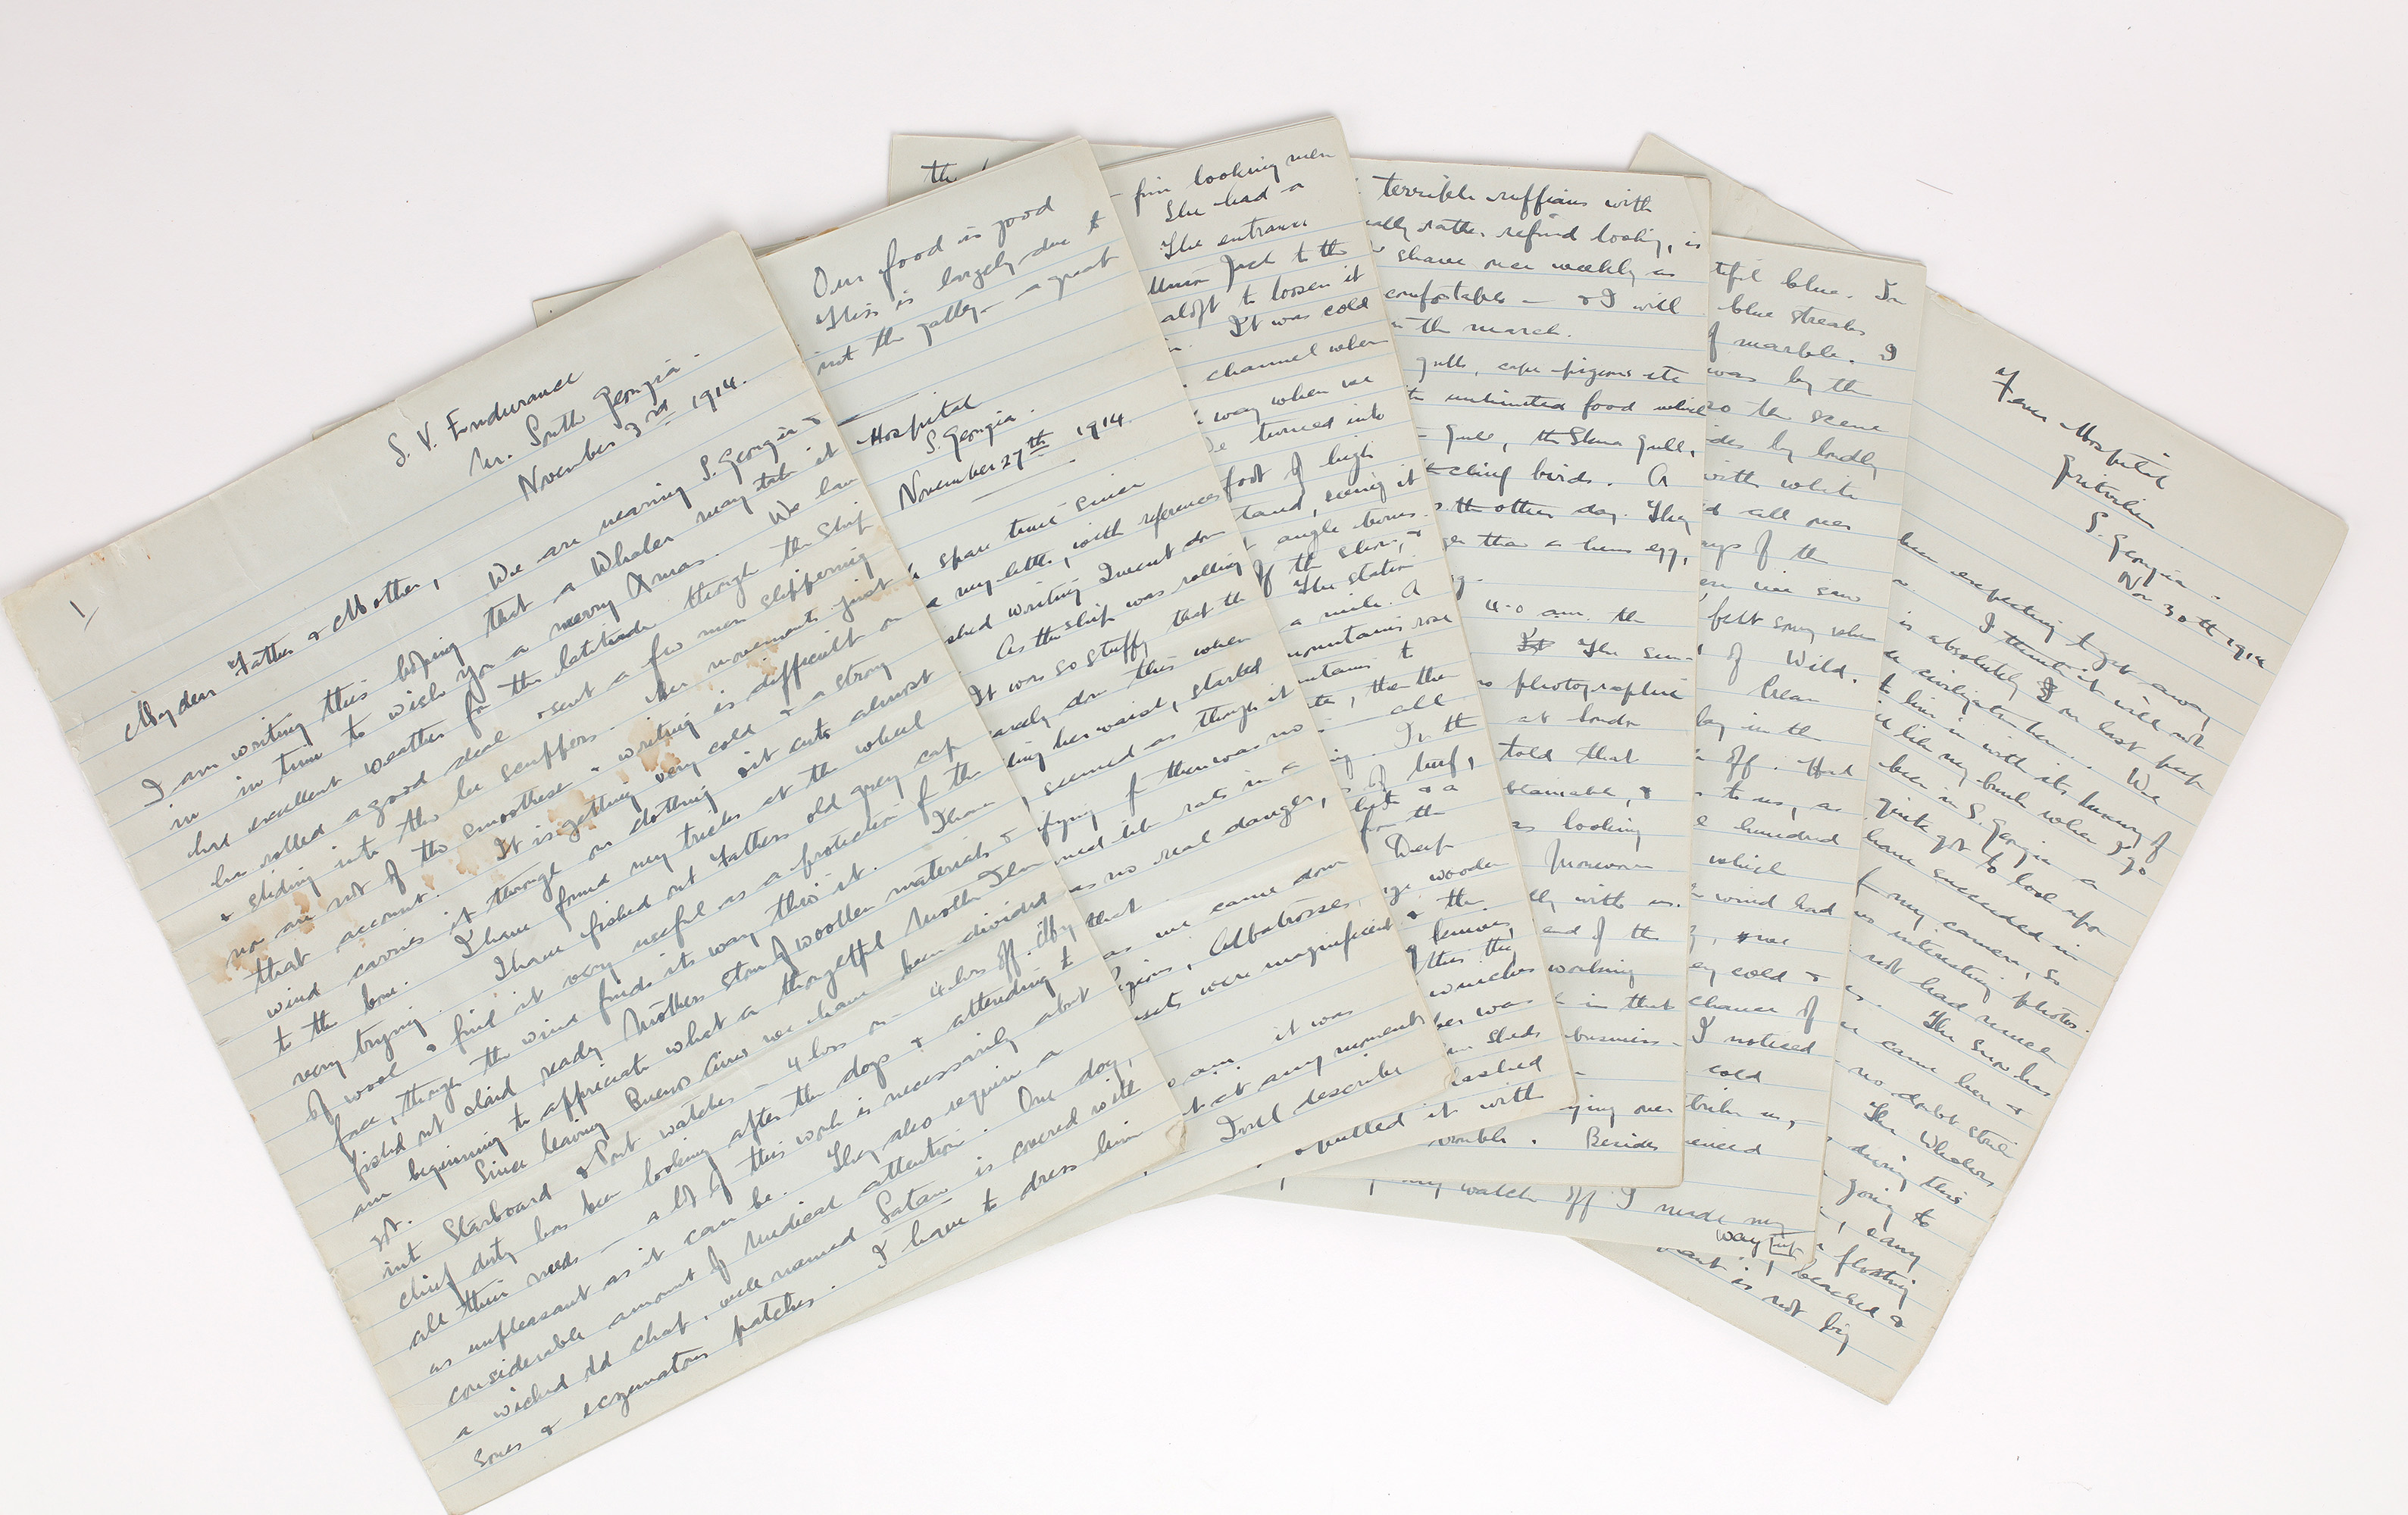 1/
S. Y. Endurance
Nr. South Georgia.
November 3rd 1914.
My dear Father & Mother,
We are nearing S. Georgia &
I am writing this hoping that a Whaler may take it
in in time to wish you a merry Xmas. We have
had excellent weather for the latitude though the ship
has rolled a good deal & sent a few men slithering
& sliding into the lee scuppers. Her movements just
now are not of the smoothest & writing is difficult on
that account. It is getting very cold & a strong
wind carries it through our clothing & it cuts almost
to the bone. I have found my tricks at the wheel
very trying. I have fished out Fathers old grey cap
of wool & find it very useful as a protection for the
face, though the wind finds its way thro' it. I have
fished out & laid ready Mothers store of woollen materials &
am beginning to appreciate what a thoughtful Mother I have
got. Since leaving Buenos Aires we have been divided
into Starboard & Port watches — 4 hrs on — 4 hrs off. My
chief duty has been looking after the dogs & attending to
all their needs — a lot of this work is necessarily about
as unpleasant as it can be. They also require a
considerable amount of medical attention. One dog,
a wicked old chap, well named Satan is covered with
sores & eczematous patches. I have to dress him
Our food is good
This is largely due to
not the galley — a great
Hospital
S. Georgia.
November 27th 1914.
spare time since
my letter, with references
writing I went down
As the ship was rolling
It was so stuffy that the
down this when
her waist, started
seemed as though it
if there was no
like rats in a
no real danger,
that
as we came down
Albatrosses,
were magnificent
it was
at any moment
I will describe
the
fine looking men
She had a
The entrance
Union Jack to the
aloft to loosen it
It was cold
channel when
way when we
turned into
foot of high
stand, seeing it
angle
of the shore, &
The station
a mile. A
mountains rose
mountains to
then the
all
In the
of turf,
& a
for the
Deep
wooden
& the
this they
winches
was
Sleds
lashed
pulled it with
terrible ruffians with
rather refined looking, is
shave once weekly as
comfortable — & I will
on the march.
gulls, cape pigeons etc
unlimited food which
gull, the Skua gull,
birds. A
the other day. They
than a hens egg,
a.m. the
The sun-
photographic
at London
told that
blameable, &
as looking
Moreover
with us.
end of the
working
in that
business —
over
trouble. Besides
my watch off I made my
way
blue. In
blue streaks
of marble. I
was by the
so the scene
by
with white
all over
of the
we saw
felt sorry when
of Wild.
Crean
lay in the
off. Had
to us, as
hundred
which
wind had
we
cold &
chance of
I noticed
cold
us,
From Hospital
Gritviken
S. Georgia.
Nov 30th 1914
been expecting to get away,
I think it will not
is absolutely our last
civilization here. We
to live in with its luxury of
like my bunk when I go
been in S. Georgia a
quite got to look upon
have succeeded in
for my camera, so
interesting photos.
not had much
The snow has
came here &
no doubt still
The Whalers
during this
going to
floating
beached &
is not big